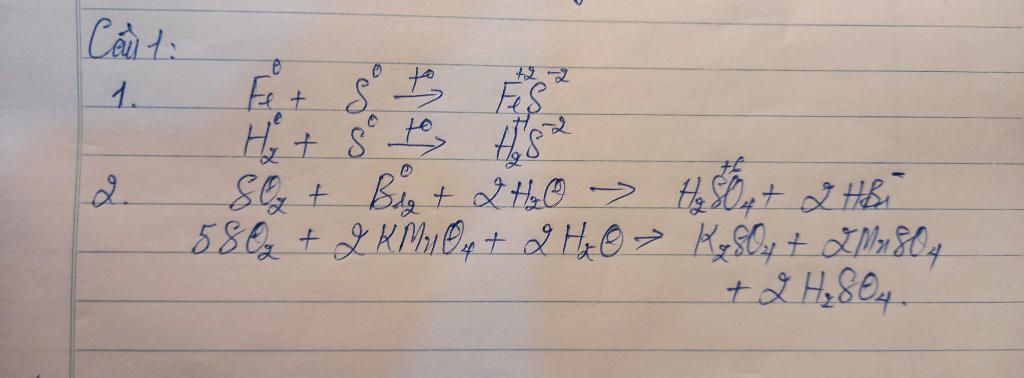 Câu 1:
1. Fe⁰ + S⁰ →(t⁰) Fe⁺²S⁻²
H₂⁰ + S⁰ →(t⁰) H₂⁺¹S⁻²
2. SO₂ + Br₂⁰ + 2H₂O → H₂S⁺⁶O₄ + 2HBr⁻
5SO₂ + 2KMnO₄ + 2H₂O → K₂SO₄ + 2MnSO₄
+ 2H₂SO₄.